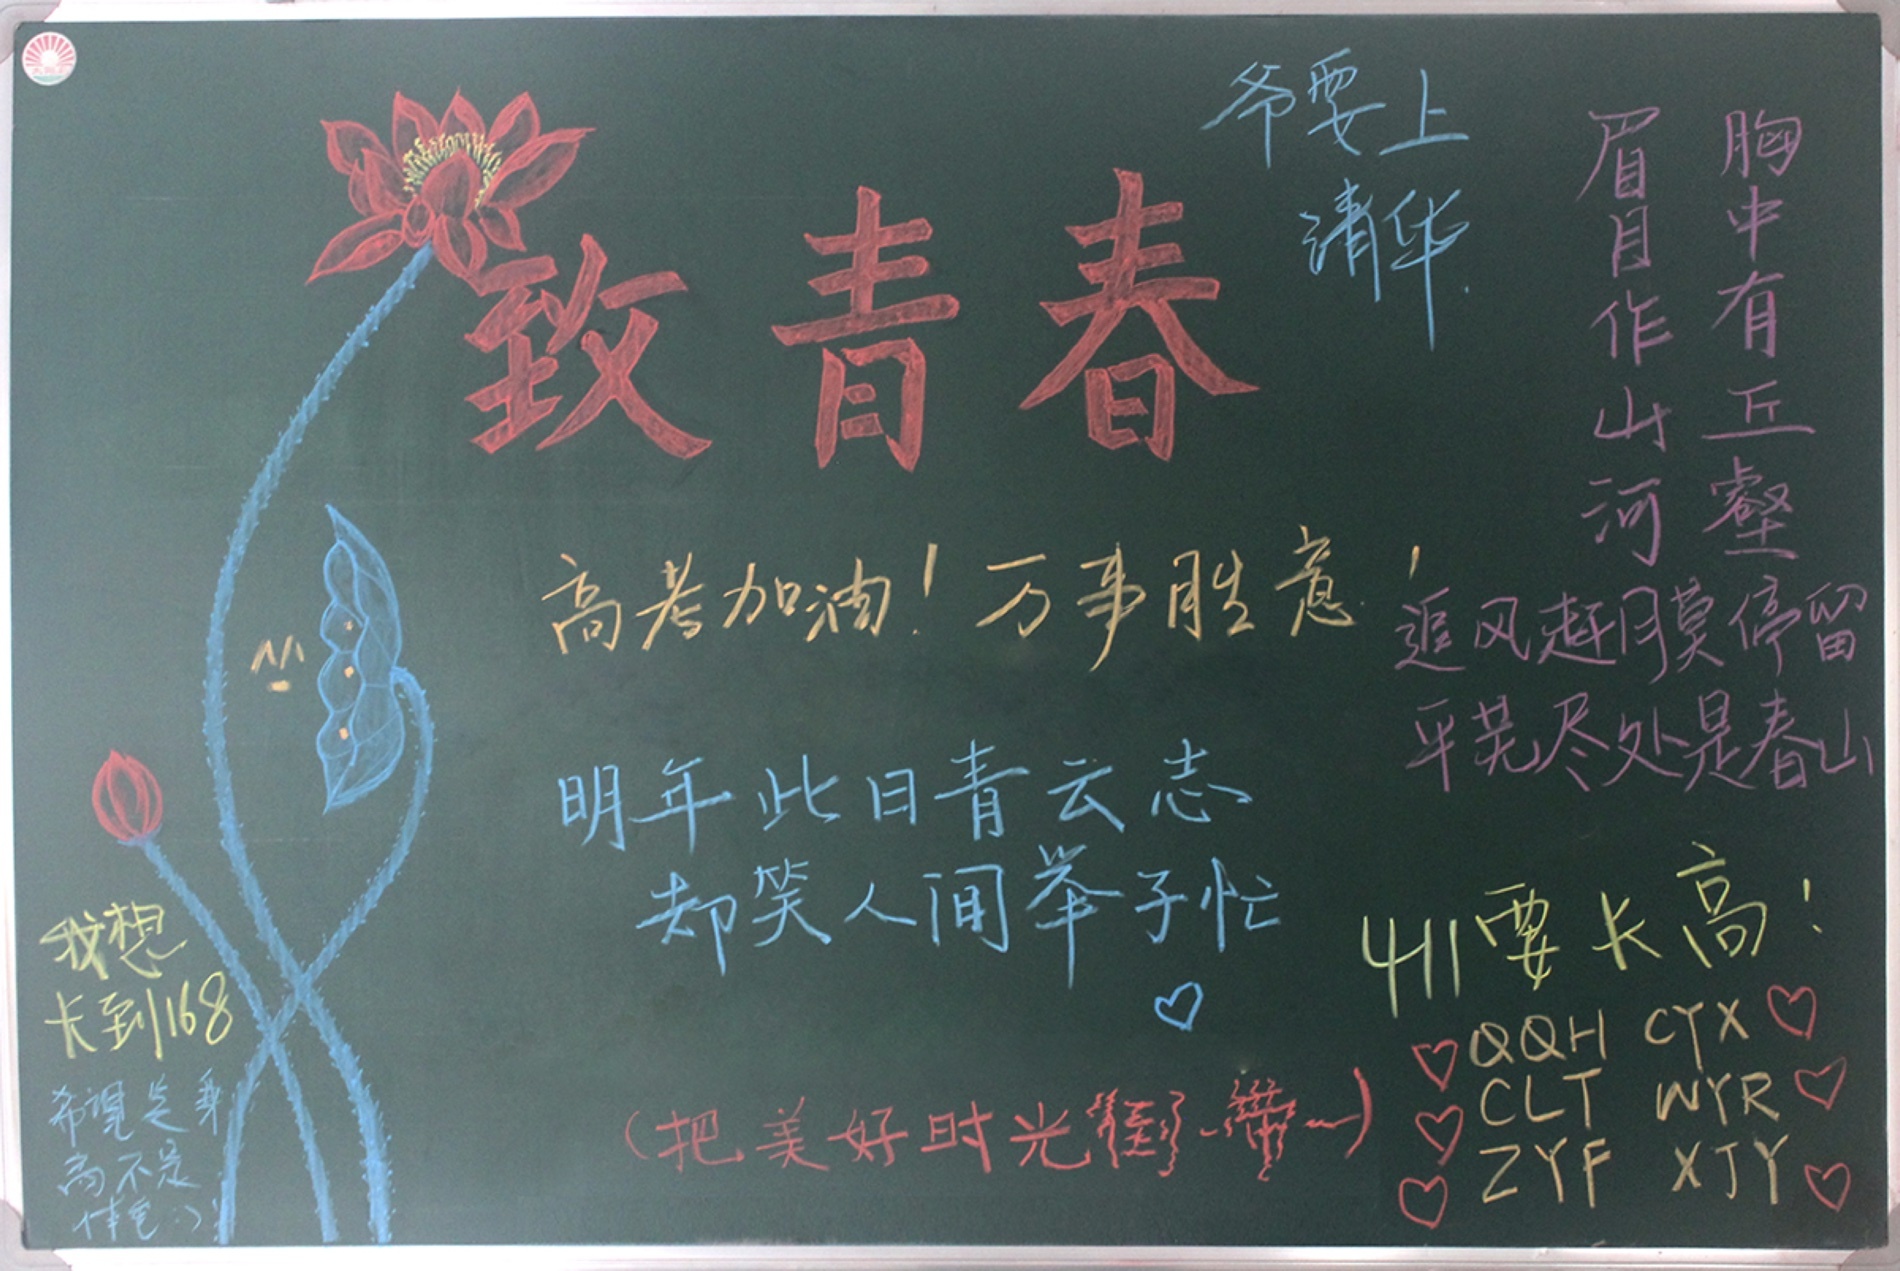 爷要上
清华.
致青春
胸中有丘壑
眉目作山河
高考加油!万事胜意!
追风赶月莫停留
平芜尽处是春山
明年此日青云志
却笑人间举子忙
411要长高!
我想
长到168
QQH CYX
CLT WYR
ZYF XJY
希望是身
高不是
体重:)
(把美好时光